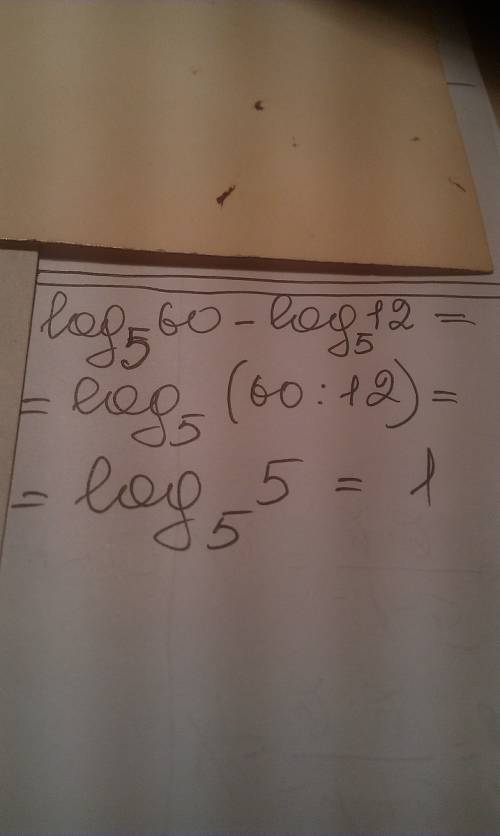 log₅60 – log₅12 =
= log₅ (60 : 12) =
= log₅ 5 = 1